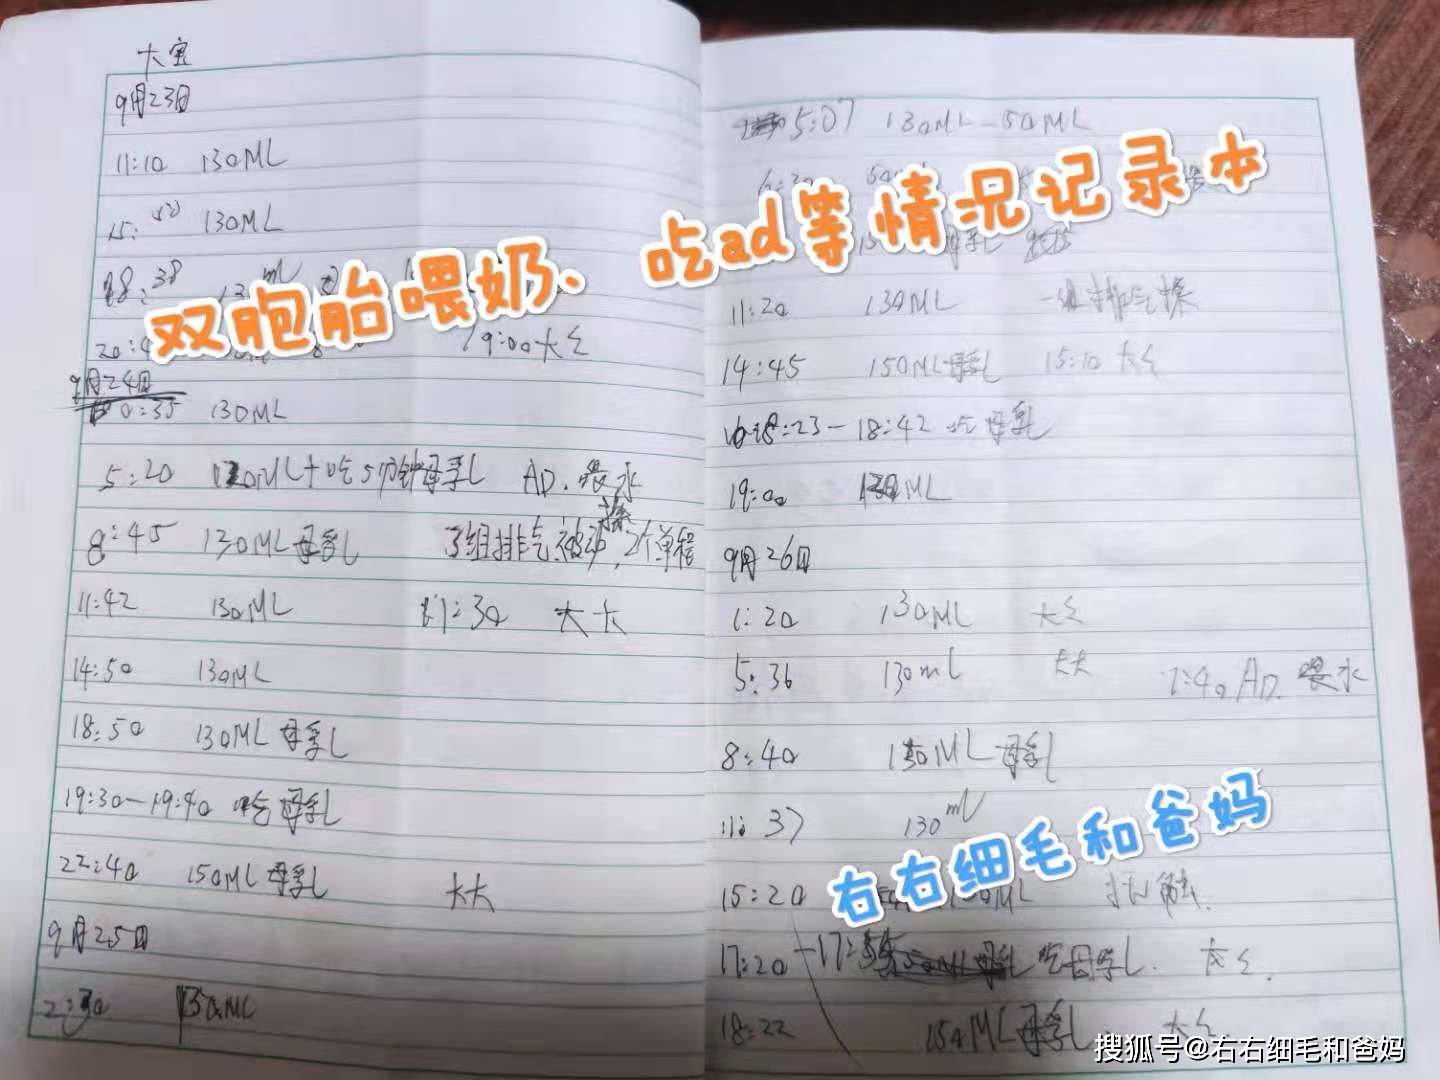 大宝
9月23日
11:10 130ML
15:50 130ML
18:38 130ml
20:4 19:00大
9月24日
0:35 130ML
5:20 120ML+吃5分钟母乳 AD.喂水
8:45 130ML母乳 3组排气操 被动,2个单程
11:42 130ML 11:30 大大
14:50 130ML
18:50 130ML母乳
19:30—19:40 吃母乳
22:40 150ML母乳 大大
9月25日
2:30 130ML
5:07 130ML-50ML
11:20 130ML 一组排气操
14:45 150ML母乳 15:10 大
:23-18:42 吃母乳
19:00 130ML
9月26日
1:20 130ML 大
5:36 130ml 大大 7:40 AD.喂水
8:40 130ML母乳
11:37 130ml
15:20 ML 抚触.
17:20-17: 吃母乳. 大
18:22 150ML母乳. 大
双胞胎喂奶、吃ad等情况记录本
右右细毛和爸妈
搜狐号@右右细毛和爸妈